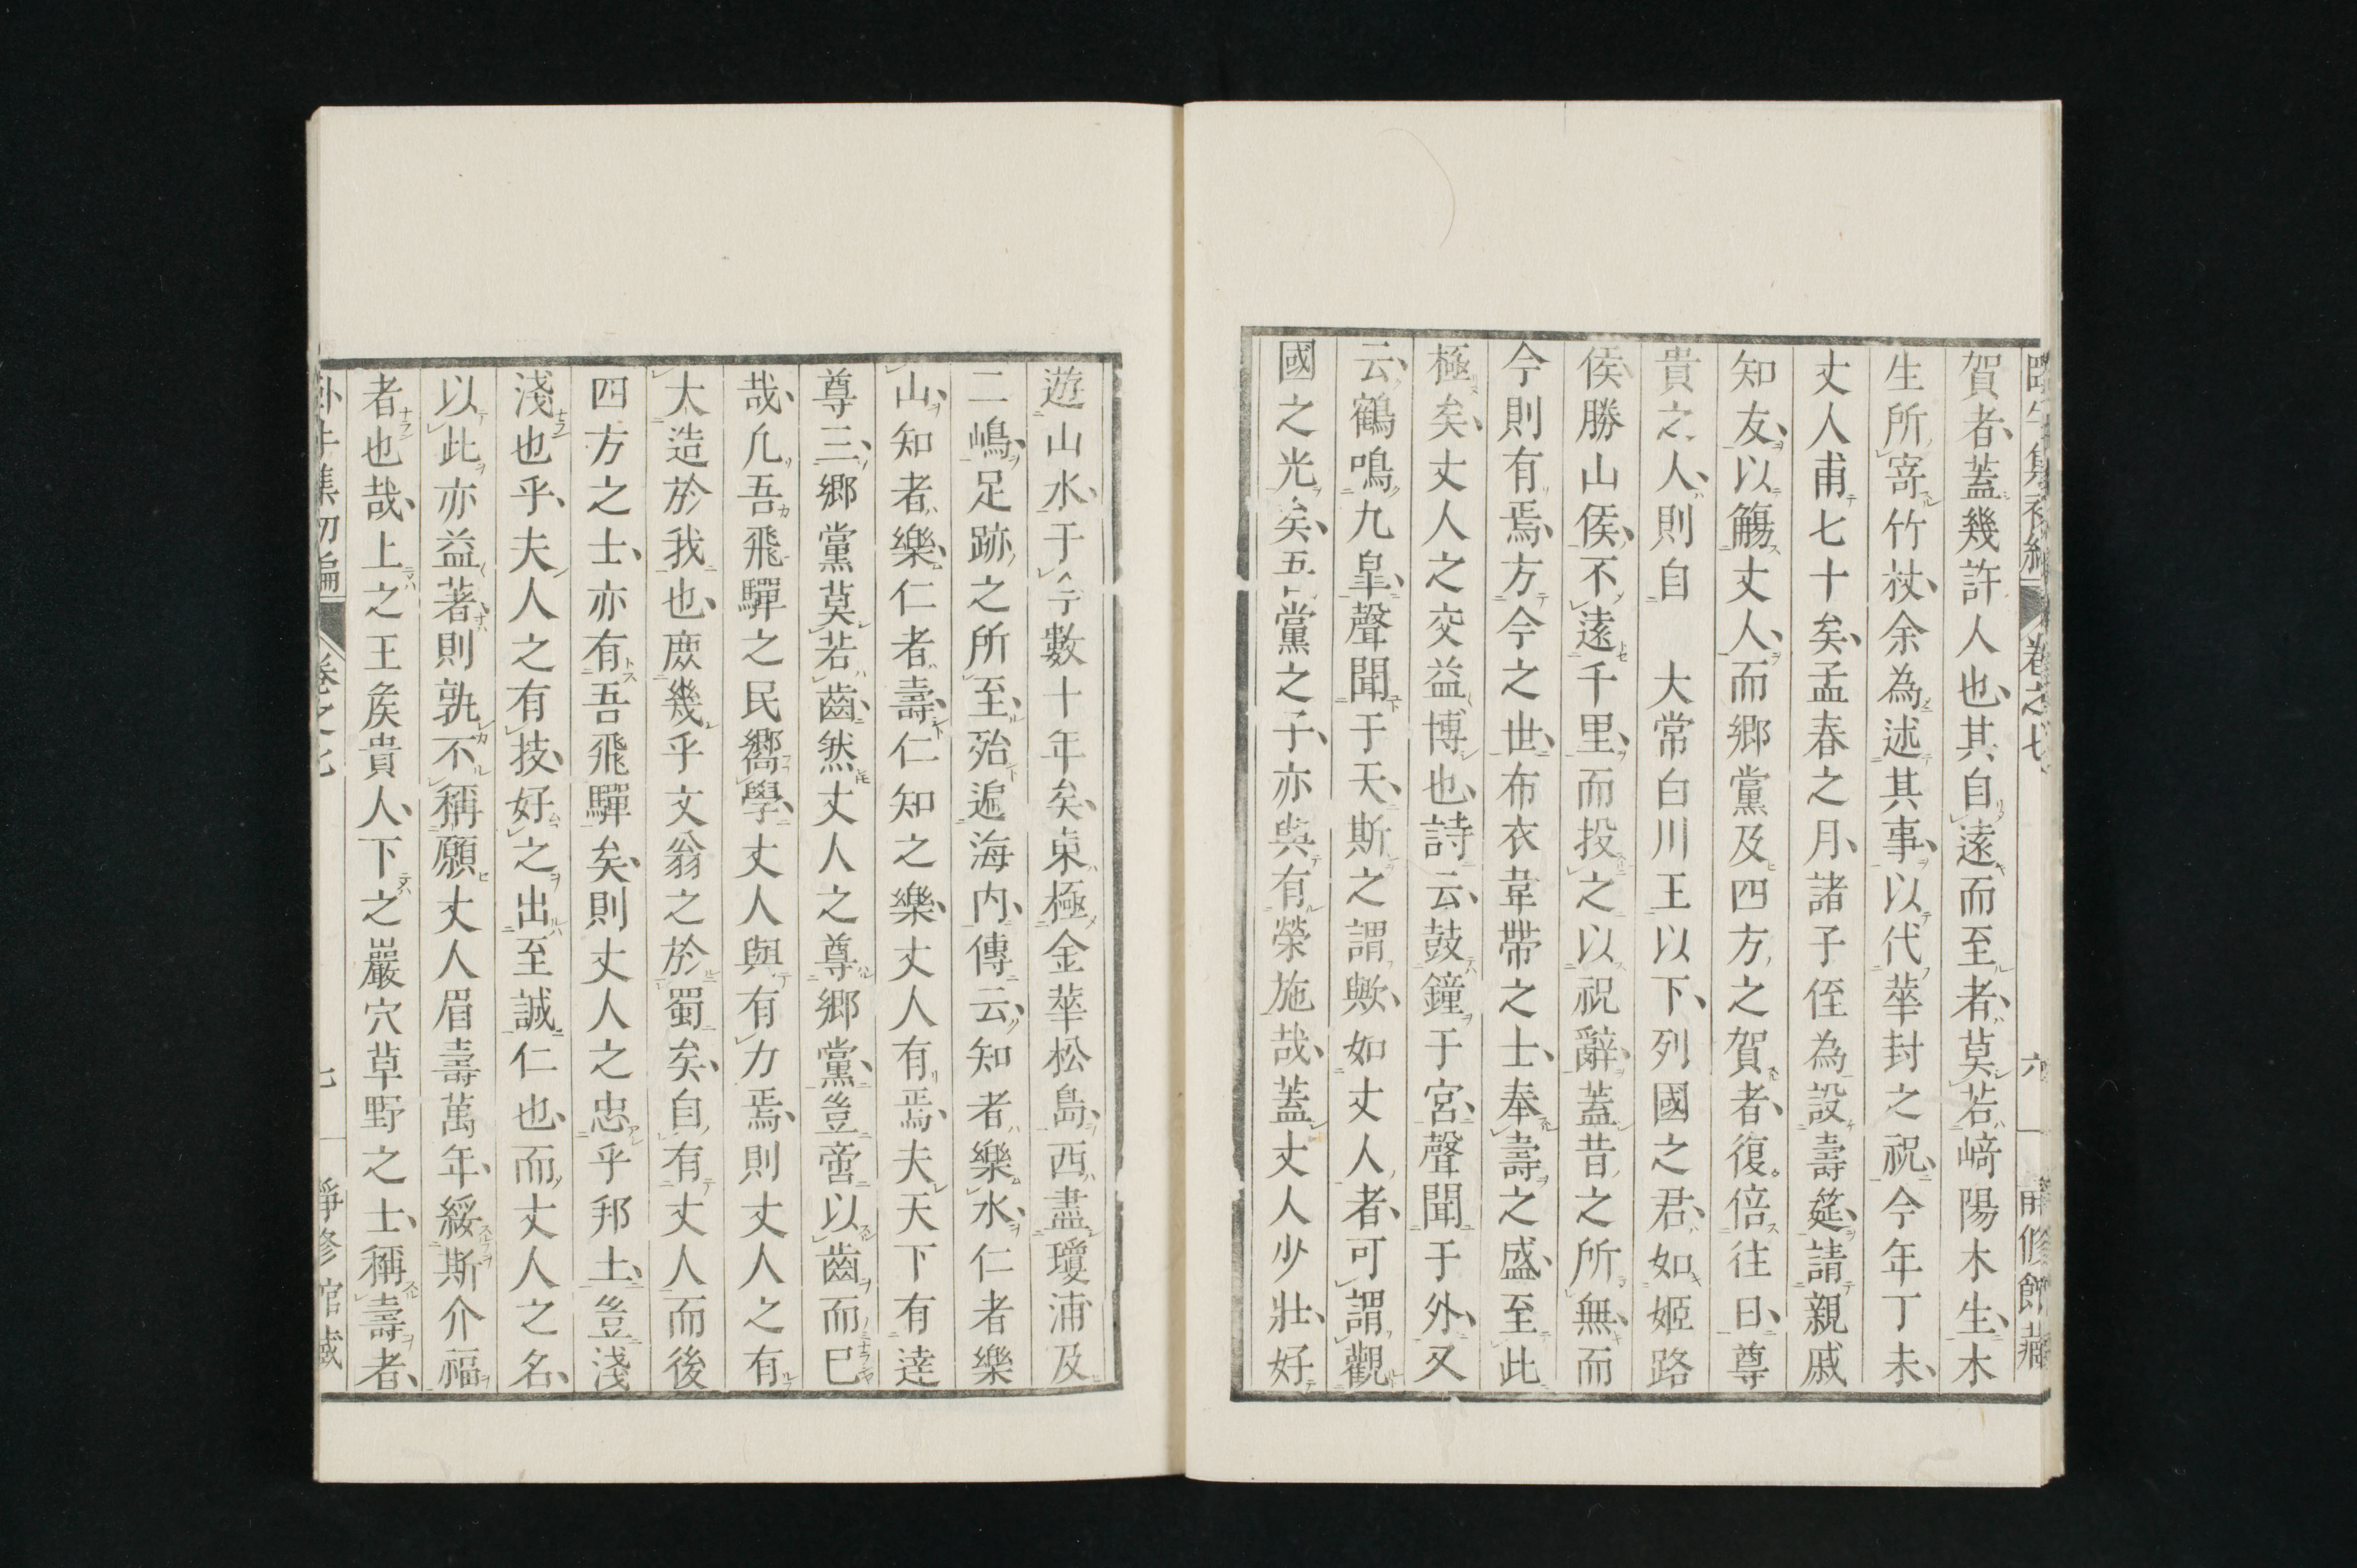 賀者、蓋幾許人也、其自遠而至者、莫若﨑陽木生、木
生所寄竹杖、余為述其事、以代華封之祝、今年丁未、
丈人甫七十矣、孟春之月、諸子侄為設壽筵、請親戚
知友、以觴丈人、而鄉黨及四方之賀者、復倍往日、尊
貴之人、則自　大常白川王以下、列國之君、如姬路
侯勝山侯、不遠千里、而投之以祝辭、蓋昔之所無、而
今則有焉、方今之世、布衣韋帶之士、奉壽之盛、至此
極矣、丈人之交益博也、詩云、鼓鐘于宮、聲聞于外、又
云、鶴鳴九皐、聲聞于天、斯之謂歟、如丈人者、可謂觀
國之光矣、五黨之子、亦與有榮施哉、蓋丈人少壯、好
遊山水、于今數十年矣、東極金華松島、西盡瓊浦及
二嶋、足跡之所至、殆遍海內、傳云、知者樂水、仁者樂
山、知者樂、仁者壽、仁知之樂、丈人有焉、夫天下有達
尊三、鄉黨莫若齒、然丈人之尊鄉黨、豈啻以齒而已
哉、凢吾飛驒之民嚮學、丈人與有力焉、則丈人之有
大造於我也、庶幾乎文翁之於蜀矣、自有丈人而後
四方之士、亦有吾飛驒矣、則丈人之忠乎邦土、豈淺
淺也乎、夫人之有技、好之出至誠仁也、而丈人之名、
以此亦益著、則孰不稱願丈人眉壽萬年、綏斯介福
者也哉、上之王矦貴人、下之巖穴草野之士、稱壽者、
卷之七